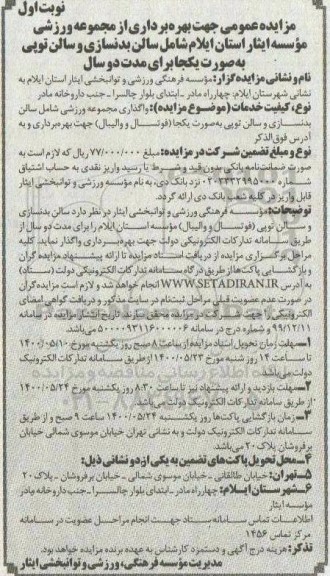 نوبت اول
مزایده عمومی جهت بهره برداری از مجموعه ورزشی
مؤسسه ایثار استان ایلام شامل سالن بدنسازی و سالن توپی
به صورت یکجا برای مدت دو سال
نام و نشانی مزایده گزار: مؤسسه فرهنگی ورزشی و توانبخشی ایثار استان ایلام به
نشانی شهرستان ایلام، چهارراه مادر ـ ابتدای بلوار چالسرا ـ جنب داروخانه مادر
نوع، کیفیت خدمات (موضوع مزایده): واگذاری مجموعه ورزشی شامل سالن
بدنسازی و سالن توپی به صورت یکجا (فوتسال و والیبال) جهت بهره برداری و به
آدرس فوق الذکر
نوع و مبلغ تضمین شرکت در مزایده: مبلغ ۷۷/۰۰۰/۰۰۰ ریال که لازم است به
صورت ضمانت نامه بانکی بدون قید و شرط یا رسید واریز نقدی به حساب اشتیاق
شماره ۰۲۰۳۳۳۲۹۹۵۰۰۰ نزد بانک دی، به نام مؤسسه ورزشی و توانبخشی ایثار
قابل واریز در کلیه شعب بانک دی ارائه گردد.
توضیحات: مؤسسه فرهنگی ورزشی و توانبخشی ایثار در نظر دارد سالن بدنسازی
و سالن توپی (فوتسال و والیبال) مؤسسه استان ایلام را برای مدت دو سال از
طریق سامانه تدارکات الکترونیکی دولت جهت بهره برداری واگذار نماید. کلیه
مراحل برگزاری مزایده از دریافت اسناد مزایده تا ارائه پیشنهاد مزایده گران
و بازگشایی پاکت ها از طریق درگاه سامانه تدارکات الکترونیکی دولت (ستاد)
به آدرس WWW.SETADIRAN.IR انجام خواهد شد و لازم است مزایده گران
در صورت عدم عضویت قبلی مراحل ثبت نام در سایت مذکور و دریافت گواهی امضای
الکترونیکی را جهت شرکت در مزایده محقق سازند. تاریخ انتشار مزایده در سامانه
۹۹/۱۲/۱۱ و شماره درج در سامانه ۵۰۰۰۰۹۳۱۱۶۰۰۰۰۶ می باشد.
۱ـ مهلت زمان تحویل اسناد مزایده از ساعت ۸ صبح روز یکشنبه مورخ ۱۴۰۰/۰۵/۱۰
تا ساعت ۱۴ روز شنبه مورخ ۱۴۰۰/۰۵/۲۳ از طریق سامانه تدارکات الکترونیک
دولت می باشد.
۲ـ مهلت بازدید و ارائه پیشنهاد نیز تا ساعت ۸:۳۰ روز یکشنبه مورخ ۱۴۰۰/۰۵/۲۴
از طریق سامانه تدارکات الکترونیک دولت می باشد.
۳ـ زمان بازگشایی پاکت ها روز یکشنبه ۱۴۰۰/۰۵/۲۴ ساعت ۹ صبح و از طریق
سامانه تدارکات الکترونیک دولت و به نشانی تهران خیابان موسوی شمالی خیابان
برفروشان پلاک ۲۰ می باشد.
۴ـ محل تحویل پاکت های تضمین به یکی از دو نشانی ذیل:
۵ـ تهران: خیابان طالقانی ـ خیابان موسوی شمالی ـ خیابان برفروشان ـ پلاک ۲۰
۶ـ شهرستان ایلام: چهارراه مادر ـ ابتدای بلوار چالسرا ـ جنب داروخانه مادر
مؤسسه ایثار
اطلاعات تماس سامانه ستاد جهت انجام مراحل عضویت در سامانه
مرکز تماس ۱۴۵۶
تذکر: هزینه درج آگهی و دستمزد کارشناس به عهده برنده مزایده خواهد بود.
مدیریت مؤسسه فرهنگی، ورزشی و توانبخشی ایثار